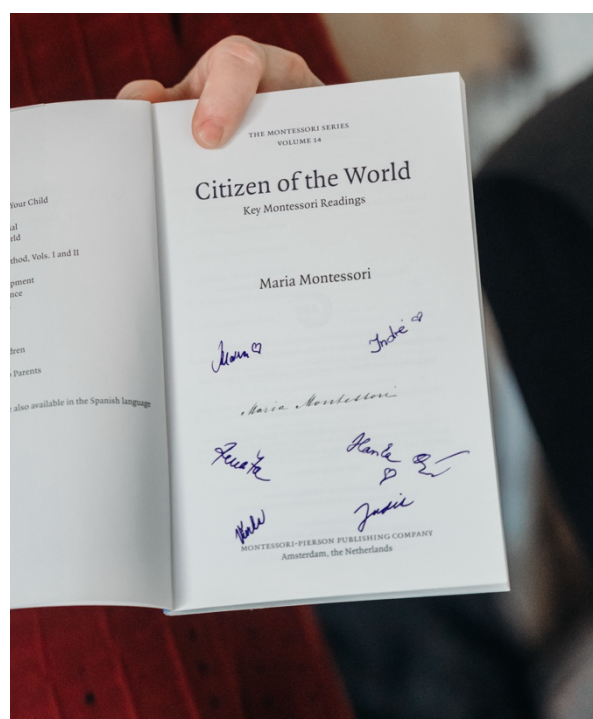 Your Child
al
rld
thod, Vols. I and II
pment
nce
dren
Parents
also available in the Spanish language
THE MONTESSORI SERIES
VOLUME 14
Citizen of the World
Key Montessori Readings
Maria Montessori
Indrė
Maria Montessori
Renata
MONTESSORI-PIERSON PUBLISHING COMPANY
Amsterdam, the Netherlands